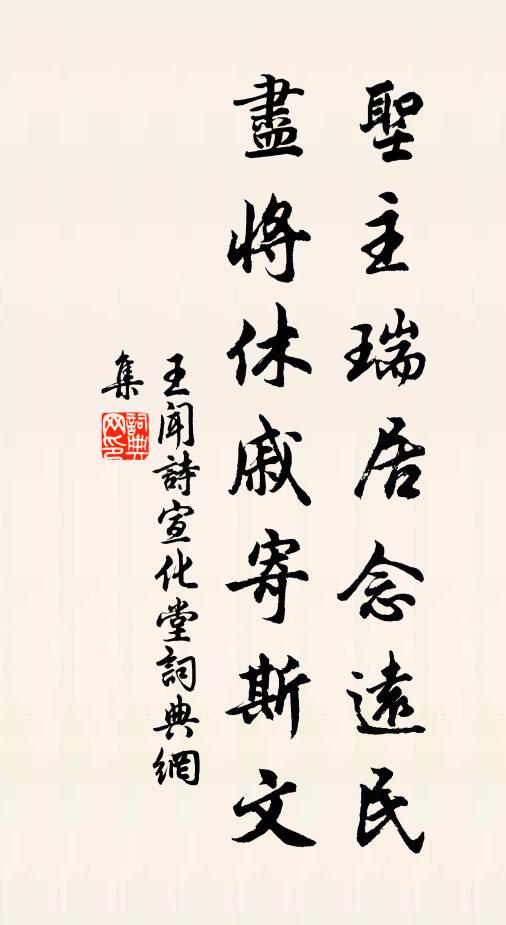 聖主瑞居念遠民
盡將休戚寄斯文
王聞詩宣化堂詞典網
集
詞典
网印